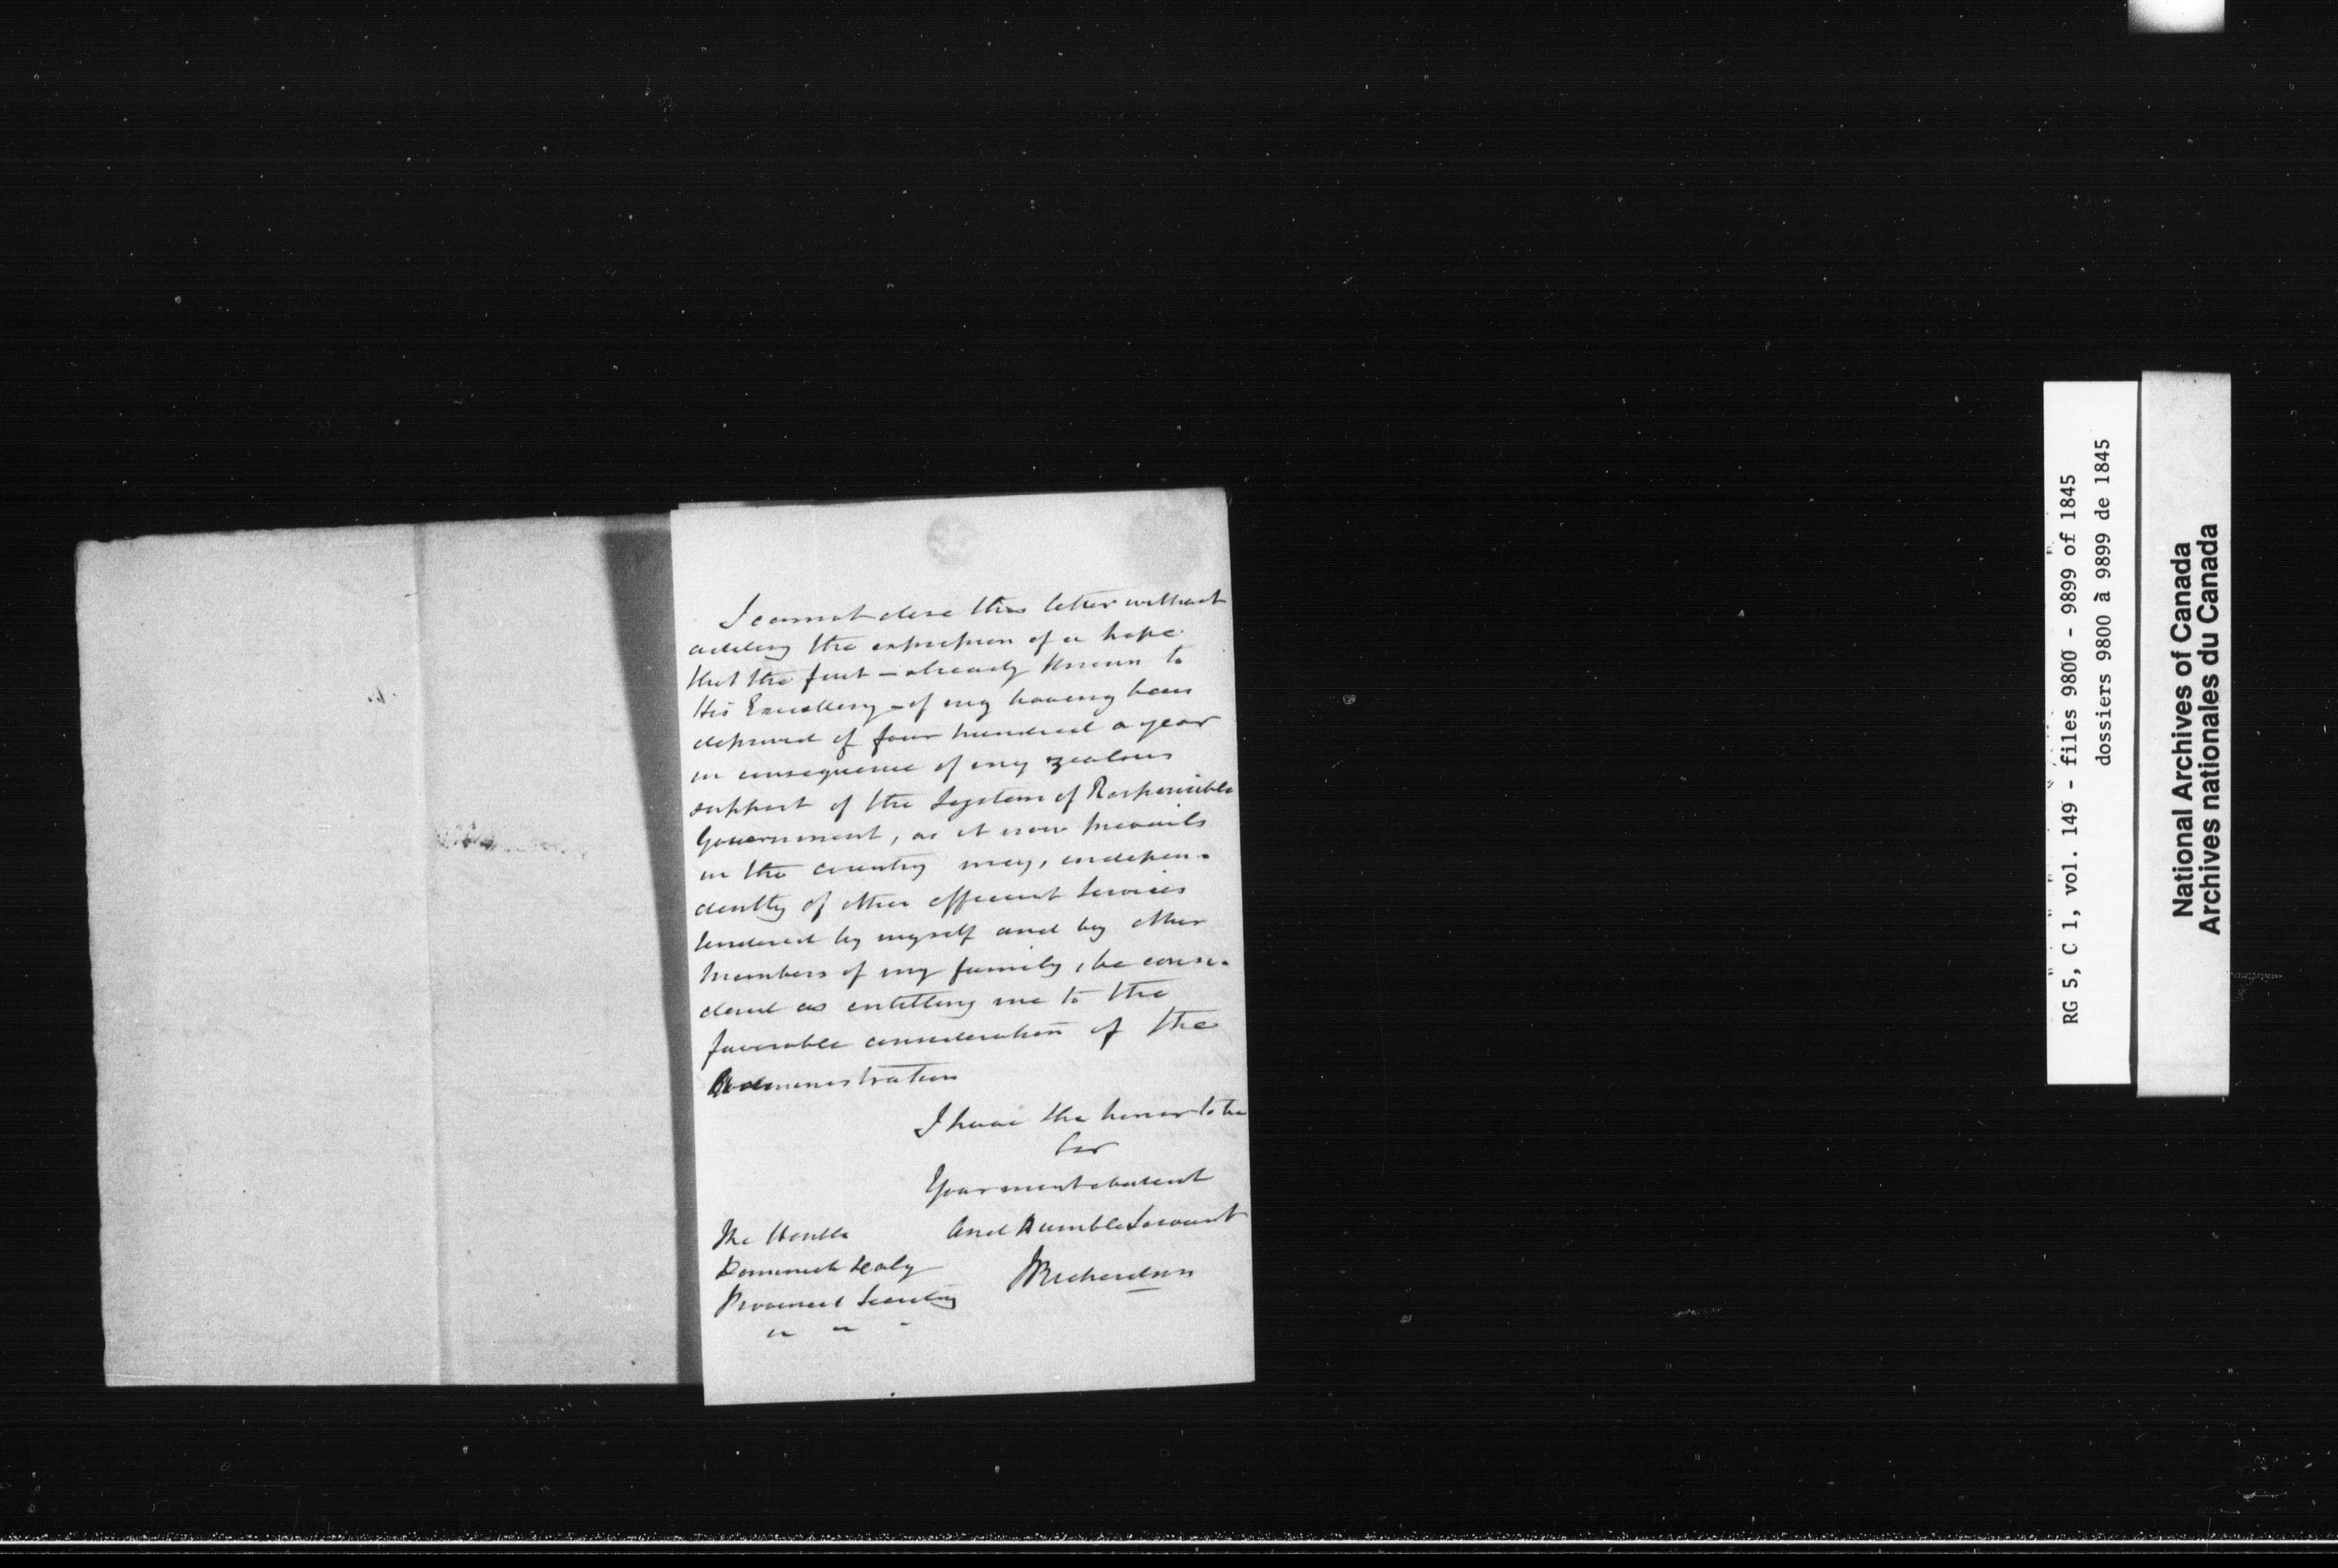 I cannot close this letter without
adding the expression of a hope
that the fact – already known to
His Excellency – of my having been
deprived of four hundred a year
in consequence of my zealous
support of the System of Responsible
Government, as it now prevails
in the country may, indepen-
dently of other efficient Services
rendered by myself and by other
Members of my family, be consi-
dered as entitling me to the
favorable consideration of the
Administration
I have the honor to be
Sir
Your most obedient
And Humble Servant
JRichardson
The Honble
Dominick Daly
Provincial Secretary
RG 5, C 1, vol. 149 - files 9800 - 9899 of 1845
dossiers 9800 à 9899 de 1845
National Archives of Canada
Archives nationales du Canada